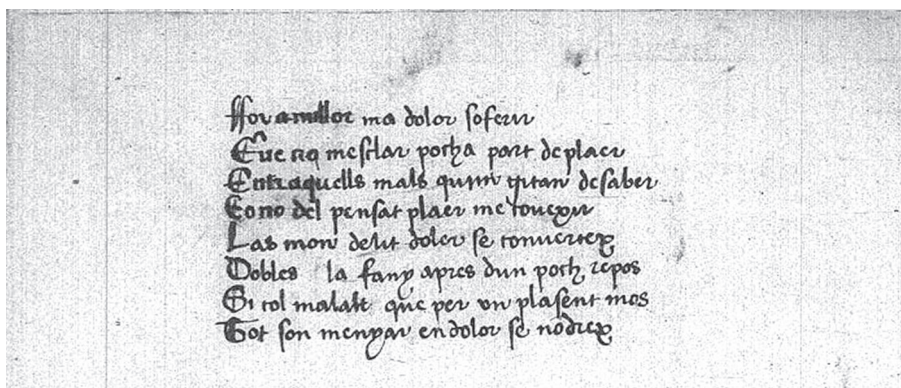 ffor amillor ma dolor soferir
Que no mesclar pocha part deplaer
Entraquells mals quim gitan desaber
Co no del pensat plaer me covexir
Las mon delit dolor se convertex
Dobles la fany apres dun poch repos
Si col malalt que per vn plasent mos
Tot son menyar endolor se nodrex